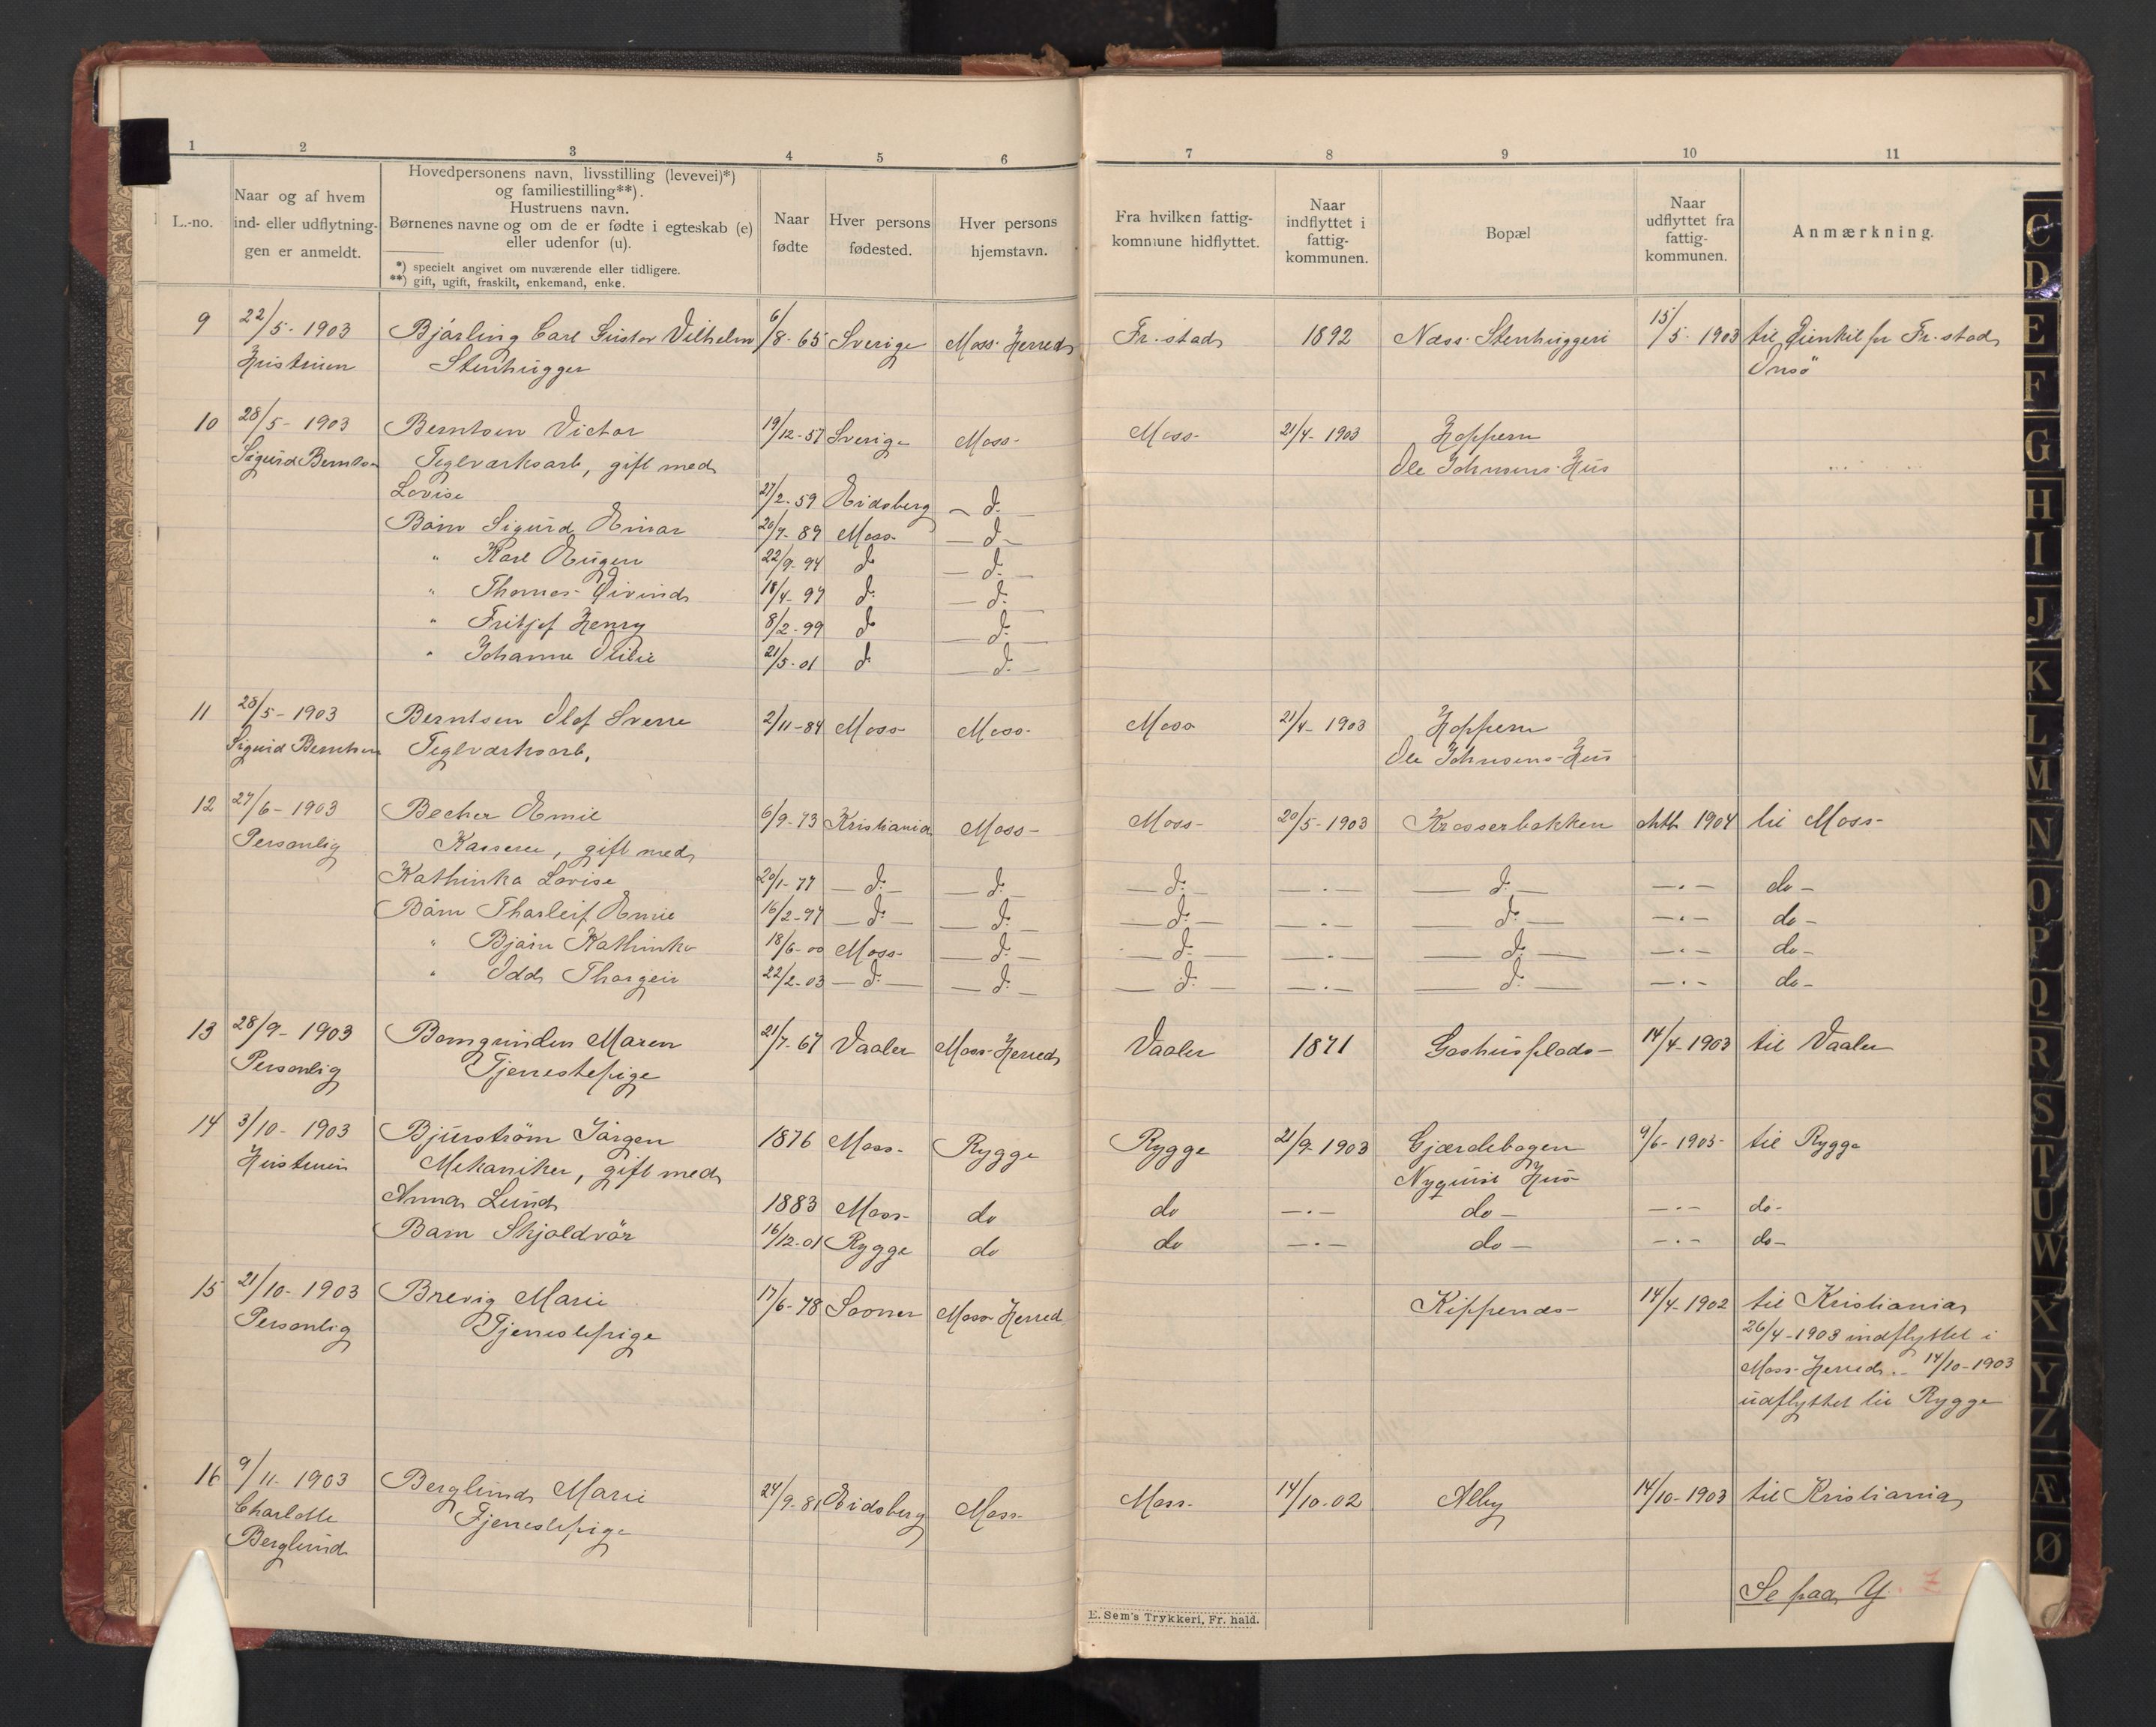 1 2 3 4 5 6 7 8 9 10 11
L.-no.
Naar og af hvem
ind- eller udflytnin-
gen er anmeldt.
Hovedpersonens navn, livsstilling (levevei)*)
og familiestilling**).
Hustruens navn.
Børnenes navne og om de er fødte i egteskab (e)
eller udenfor (u).
*) specielt angivet om nuværende eller tidligere.
**) gift, ugift, fraskilt, enkemand, enke.
Naar
fødte
Hver persons
fødested.
Hver persons
hjemstavn.
Fra hvilken fattig-
kommune hidflyttet.
Naar
indflyttet i
fattig-
kommunen.
Bopæl
Naar
udflyttet fra
fattig-
kommunen.
Anmærkning.
9 22/5- 1903 Bjårling Carl Gustav Vilhelm 6/8- 65 Sverige Moss Herred Fr.stad 1892 Næss Stenhuggeri 15/5- 1903 til Fr.stad
Hustruen Stenhugger Onsö
10 28/5- 1903 Berntsen Victor 19/12-57 Sverige Moss- Moss- 21/4- 1903 Hoppern
Sigurd Berntsen Teglværksarb, gift med Ole Johnsens Hus
Lovise 27/2-59 Eidsberg - do -
Barn Sigurd Einar 20/7-89 Moss - do -
" Karl Eugen 22/9-94 do - do -
" Thomas Øivind 18/4-97 do - do -
" Fritjof Henry 8/2-99 do - do -
" Johanne Otilie 21/5-01 do - do -
11 28/5- 1903 Berntsen Olof Sverre 2/11-84 Moss- Moss- Moss 21/4- 1903 Hoppern
Sigurd Berntsen Teglværksarb. Ole Johnsens Hus
12 27/6- 1903 Becher Emil 6/9-73 Kristiania Moss- Moss- 20/5-1903 Krosserbakken oktb 1904 til Moss-
Personlig Kasserer, gift med
Kathinka Lovise 20/1-77 - do - - do - - do - - " - - do - - " - do -
Barn Thorleif Emil 16/2-97 - do - - do - - do - - " - - do - - " - do -
" Bjårn Kathinka 18/6-00 Moss- - do - - do - - " - - do - - " - do -
" Odd Thorgeir 22/2-03 - do - - do - - do - - " - - do - - " - do -
13 28/9- 1903 Bomgrinden Maren 21/7-67 Vaaler Moss-Herred Vaaler 1871 Gashusplads- 14/4-1903 til Vaaler
Personlig Tjenestepige
14 3/10- 1903 Bjurström Jårgen 1876 Moss- Rygge Rygge 21/9-1903 Gjærdebogen 9/6-1905- til Rygge
Hustruen Mekaniker, gift med Nyquist Hus
Anna Lund 1883 Moss- do do - " - do - - " - do -
Barn Skjoldvår 16/12-01 Rygge do do - " - do - - " - do -
15 21/10- 1903 Brevig Marie 17/6-78 Sooner Moss Herred Kippenes- 14/4-1902 til Kristiania
Personlig Tjenestepige 26/4-1903 indflyttet i
Moss-Herred. 14/10-1903
udflyttet til Rygge
16 9/11- 1903 Berglund Marie 24/9-81 Eidsberg Moss- Moss- 14/10-02 Alby 14/10-1903 til Kristiania
Charlotte Tjenestepige
Berglund
Se paa Y.
E. Sem's Trykkeri, Fr. hald.
C
D
E
F
G
H
I
J
K
L
M
N
O
P
Q
R
S
T
U
W
X
Y
Z
Æ
Ø